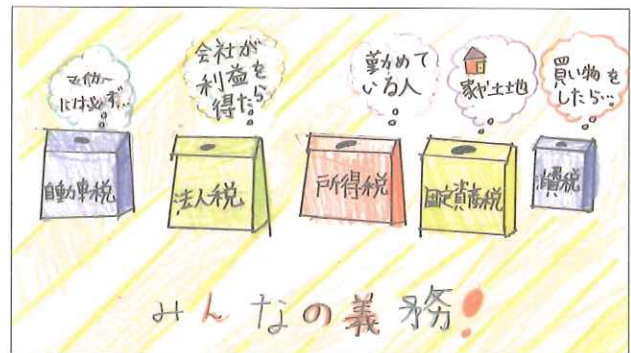 マイカー
には必ず…
会社が
利益を
得たら
勤めて
いる人
家や土地
買い物を
したら…
自動車税
法人税
所得税
固定資産税
消費税
みんなの義務!